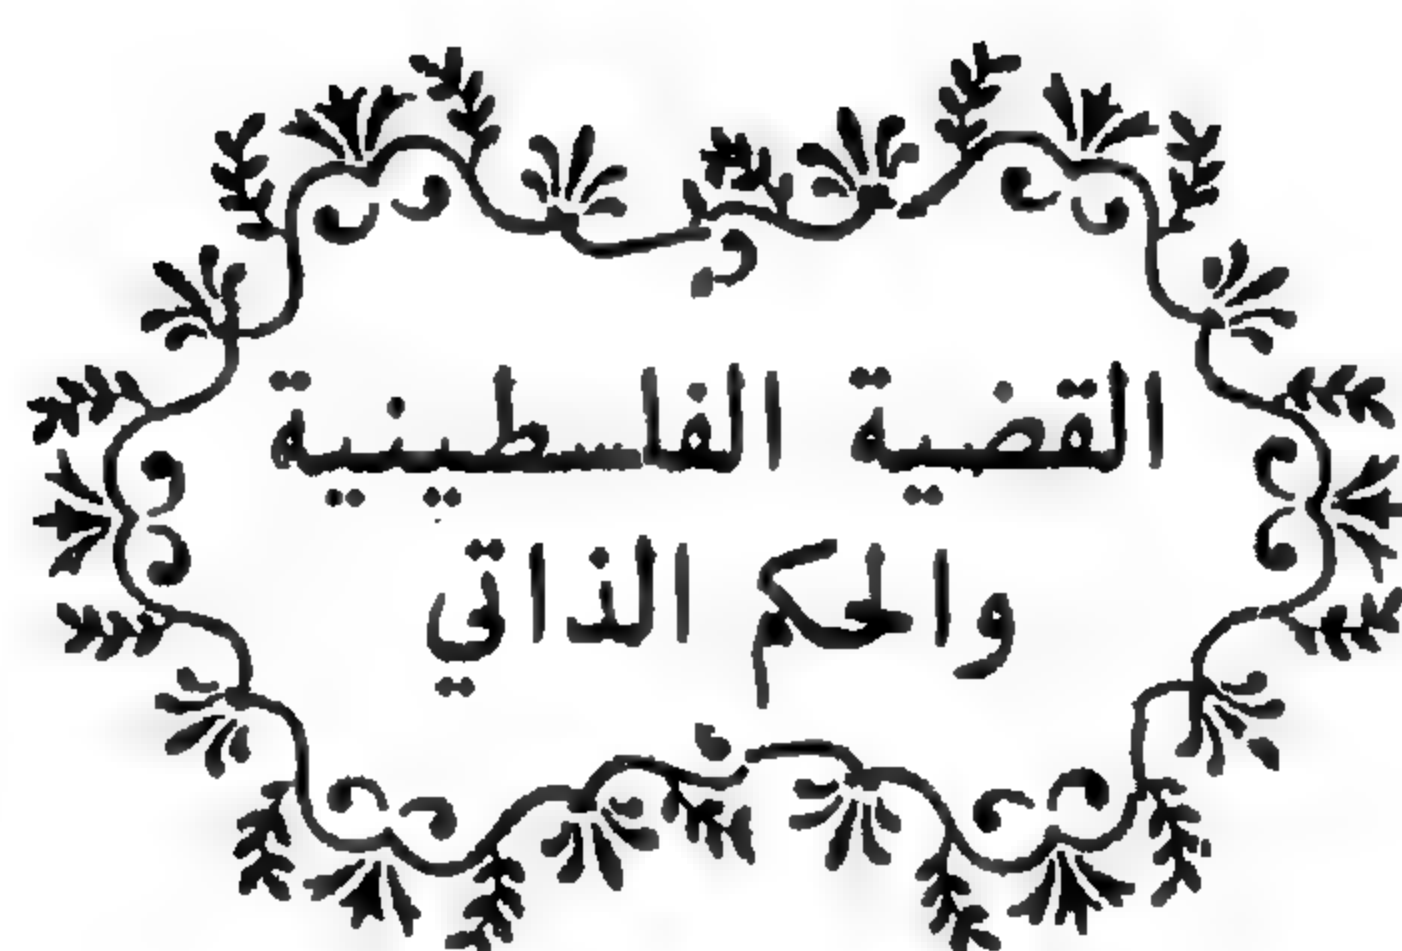 القضية الفلسطينية
والحكم الذاتي